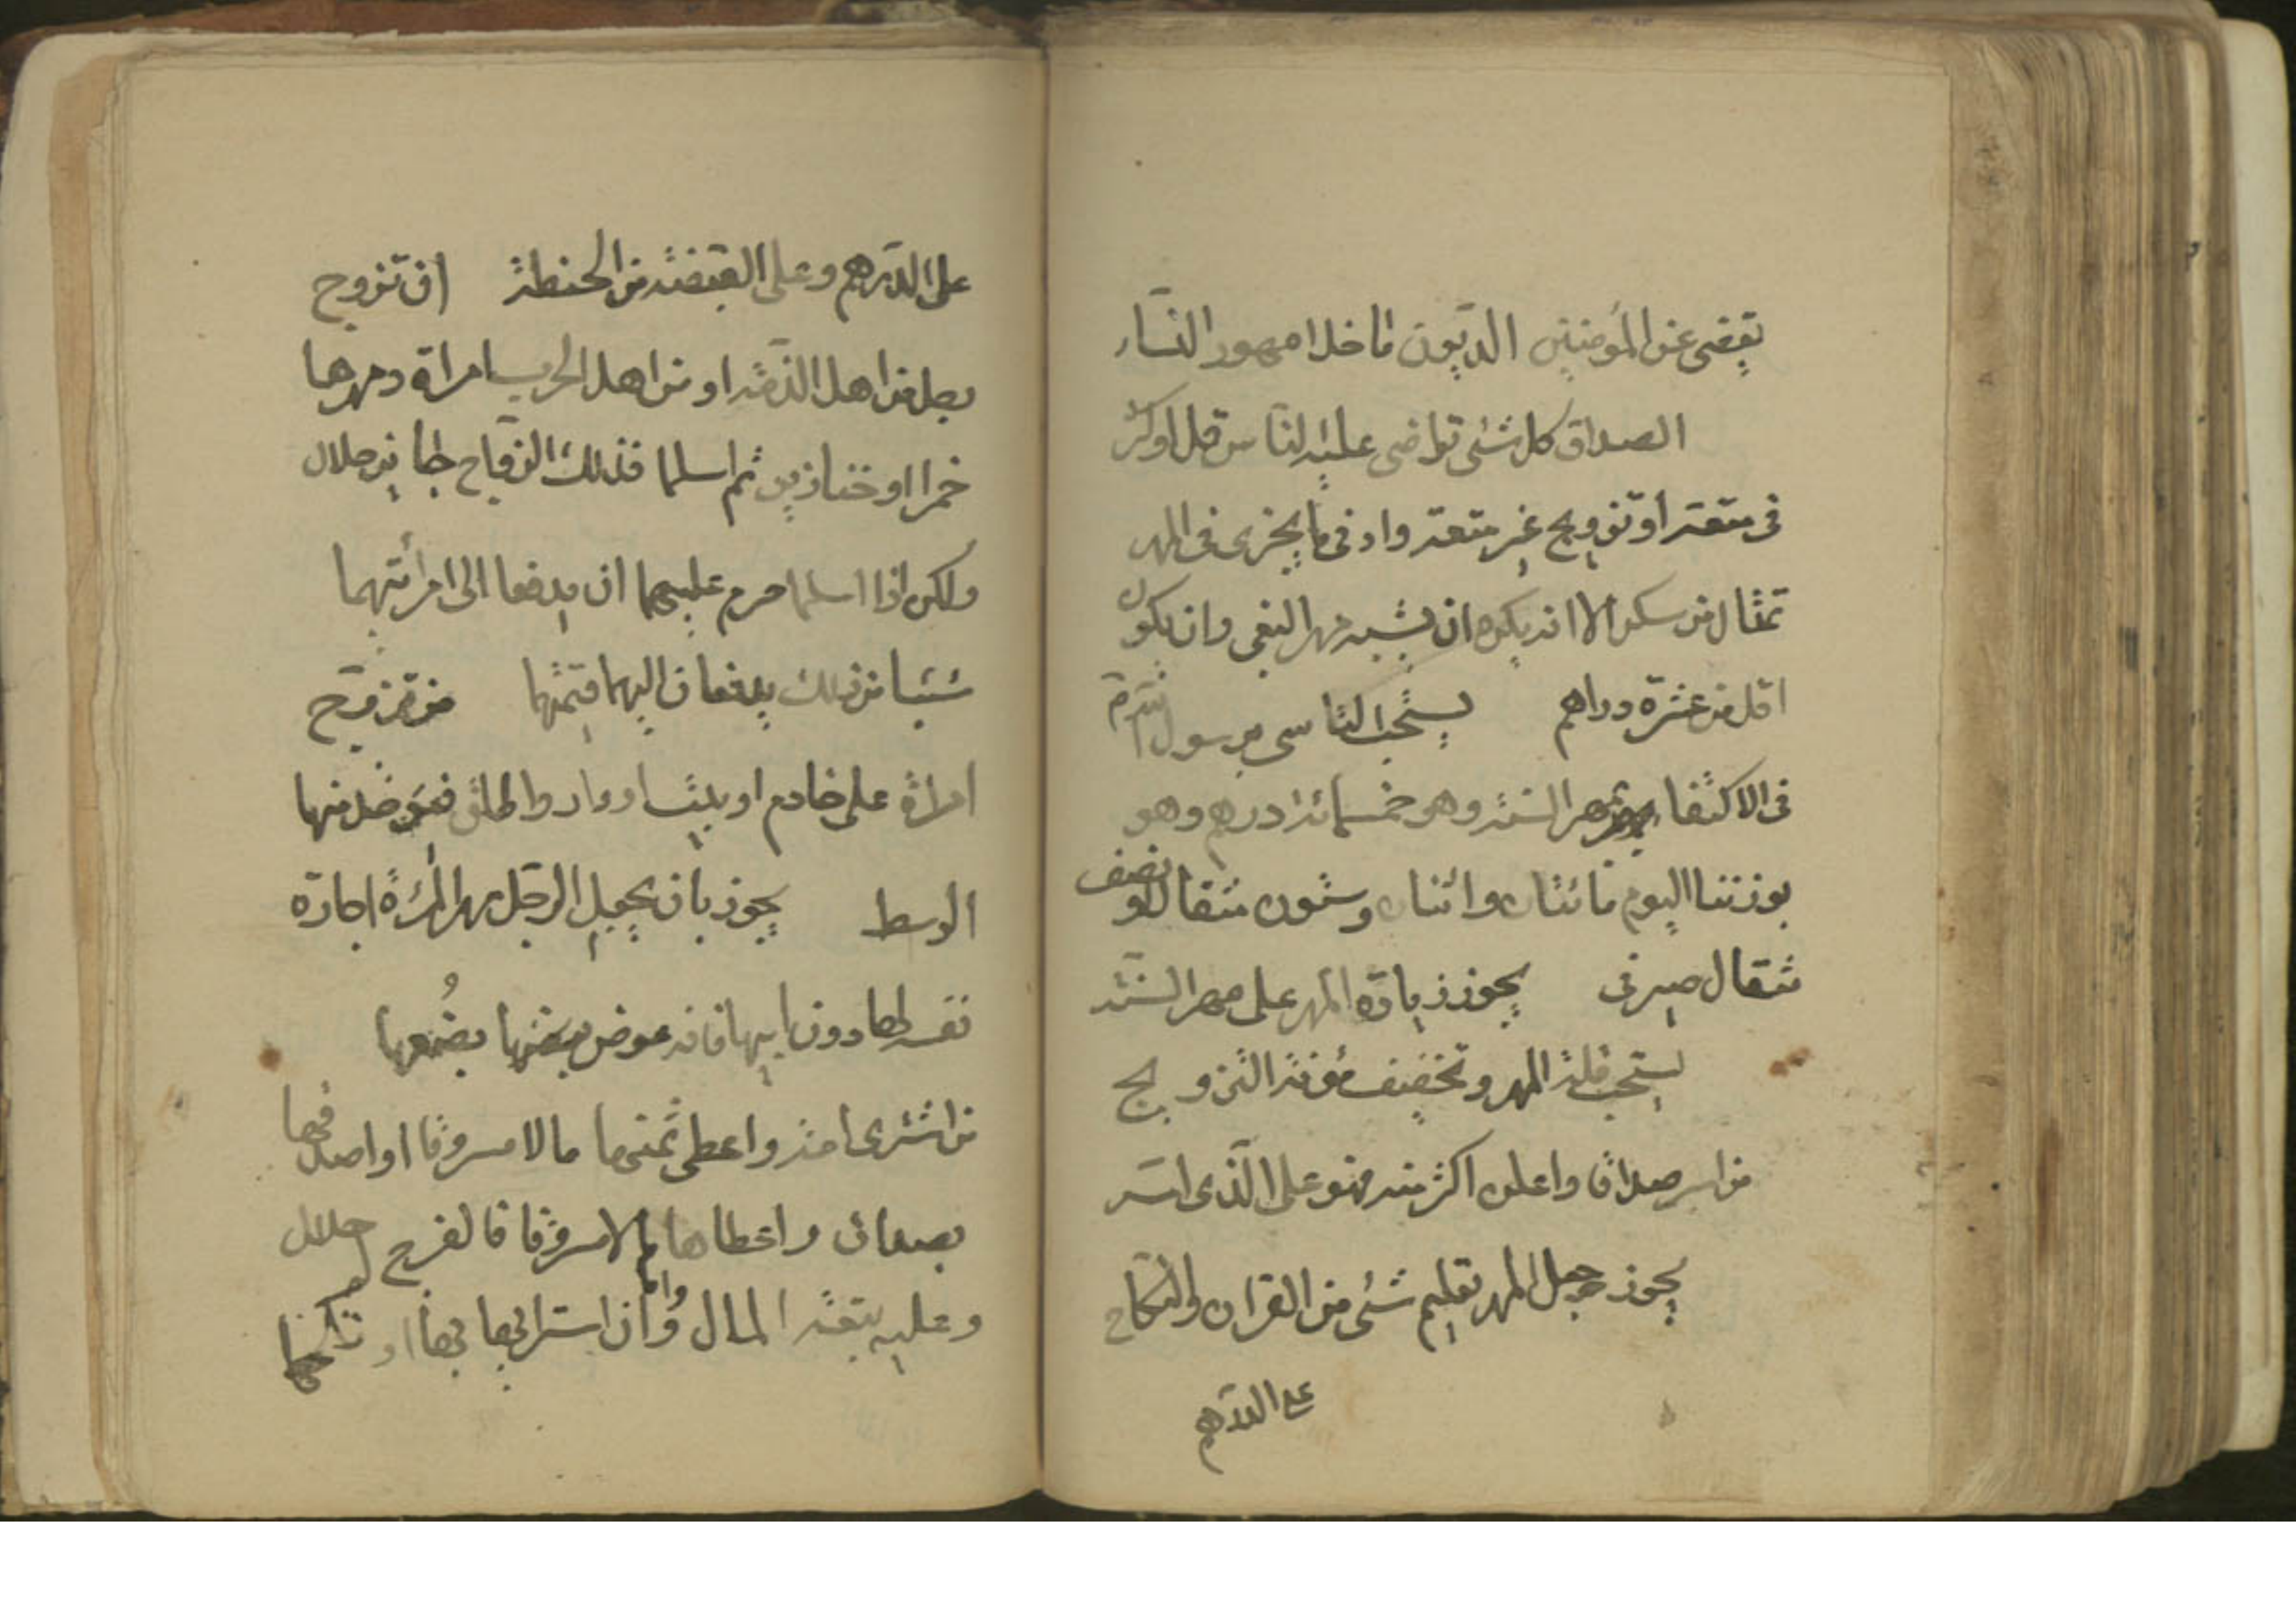 يقضى عن المؤمنين الديون ما خلا مهور النساء
الصداق كل شئ تراضى عليه الناس قل او كثر
فى متعة أو تزويج غير متعة وادنى ما يجزى فى المهر
تمثال من سكر الا انه يكره ان يشبه مهر البغى وان يكون
اقل من عشرة دراهم يستحب التاسى برسول
فى الاكتفا بمهر السنة وهو خمسمائة درهم وهو
بوزننا اليوم مائتان واثنان وستون مثقالا ونصف
مثقال صيرفى يجوز زيادة المهر على مهر السنة
يستحب قلة المهر وتخفيف مؤنة التزويج
من اسر صداقا واعلن اكثر منه فهو على الذى اسر
يجوز جعل المهر تعليم شئ من القران والنكاح
على الدرهم
على الدرهم وعلى القبضة من الحنطة ان تزوج
رجل من اهل الذمة او من اهل الحرب امراة ومهرها
خمرا او خنازير ثم اسلما فذلك النكاح جايز حلال
ولكن اذا اسلما حرم عليهما ان يدفعا الى امرأتيهما
شيئا من ذلك يدفعان اليهما قيمتها من تزوج
امراة على خادم او بيت او دار واطلق
الوسط يجوز بان يجعل الرجل مهر المرئة اجارة
نفسه لها دون ابيها فانه عوض بضعها
من اشترى امة واعطى ثمنها مالا مسروقا او اصدقها
بصداق واعطاها مالا مسروقا فالفرج له حلال
وعليه تبعة المال وأما ان اشتراها بها او